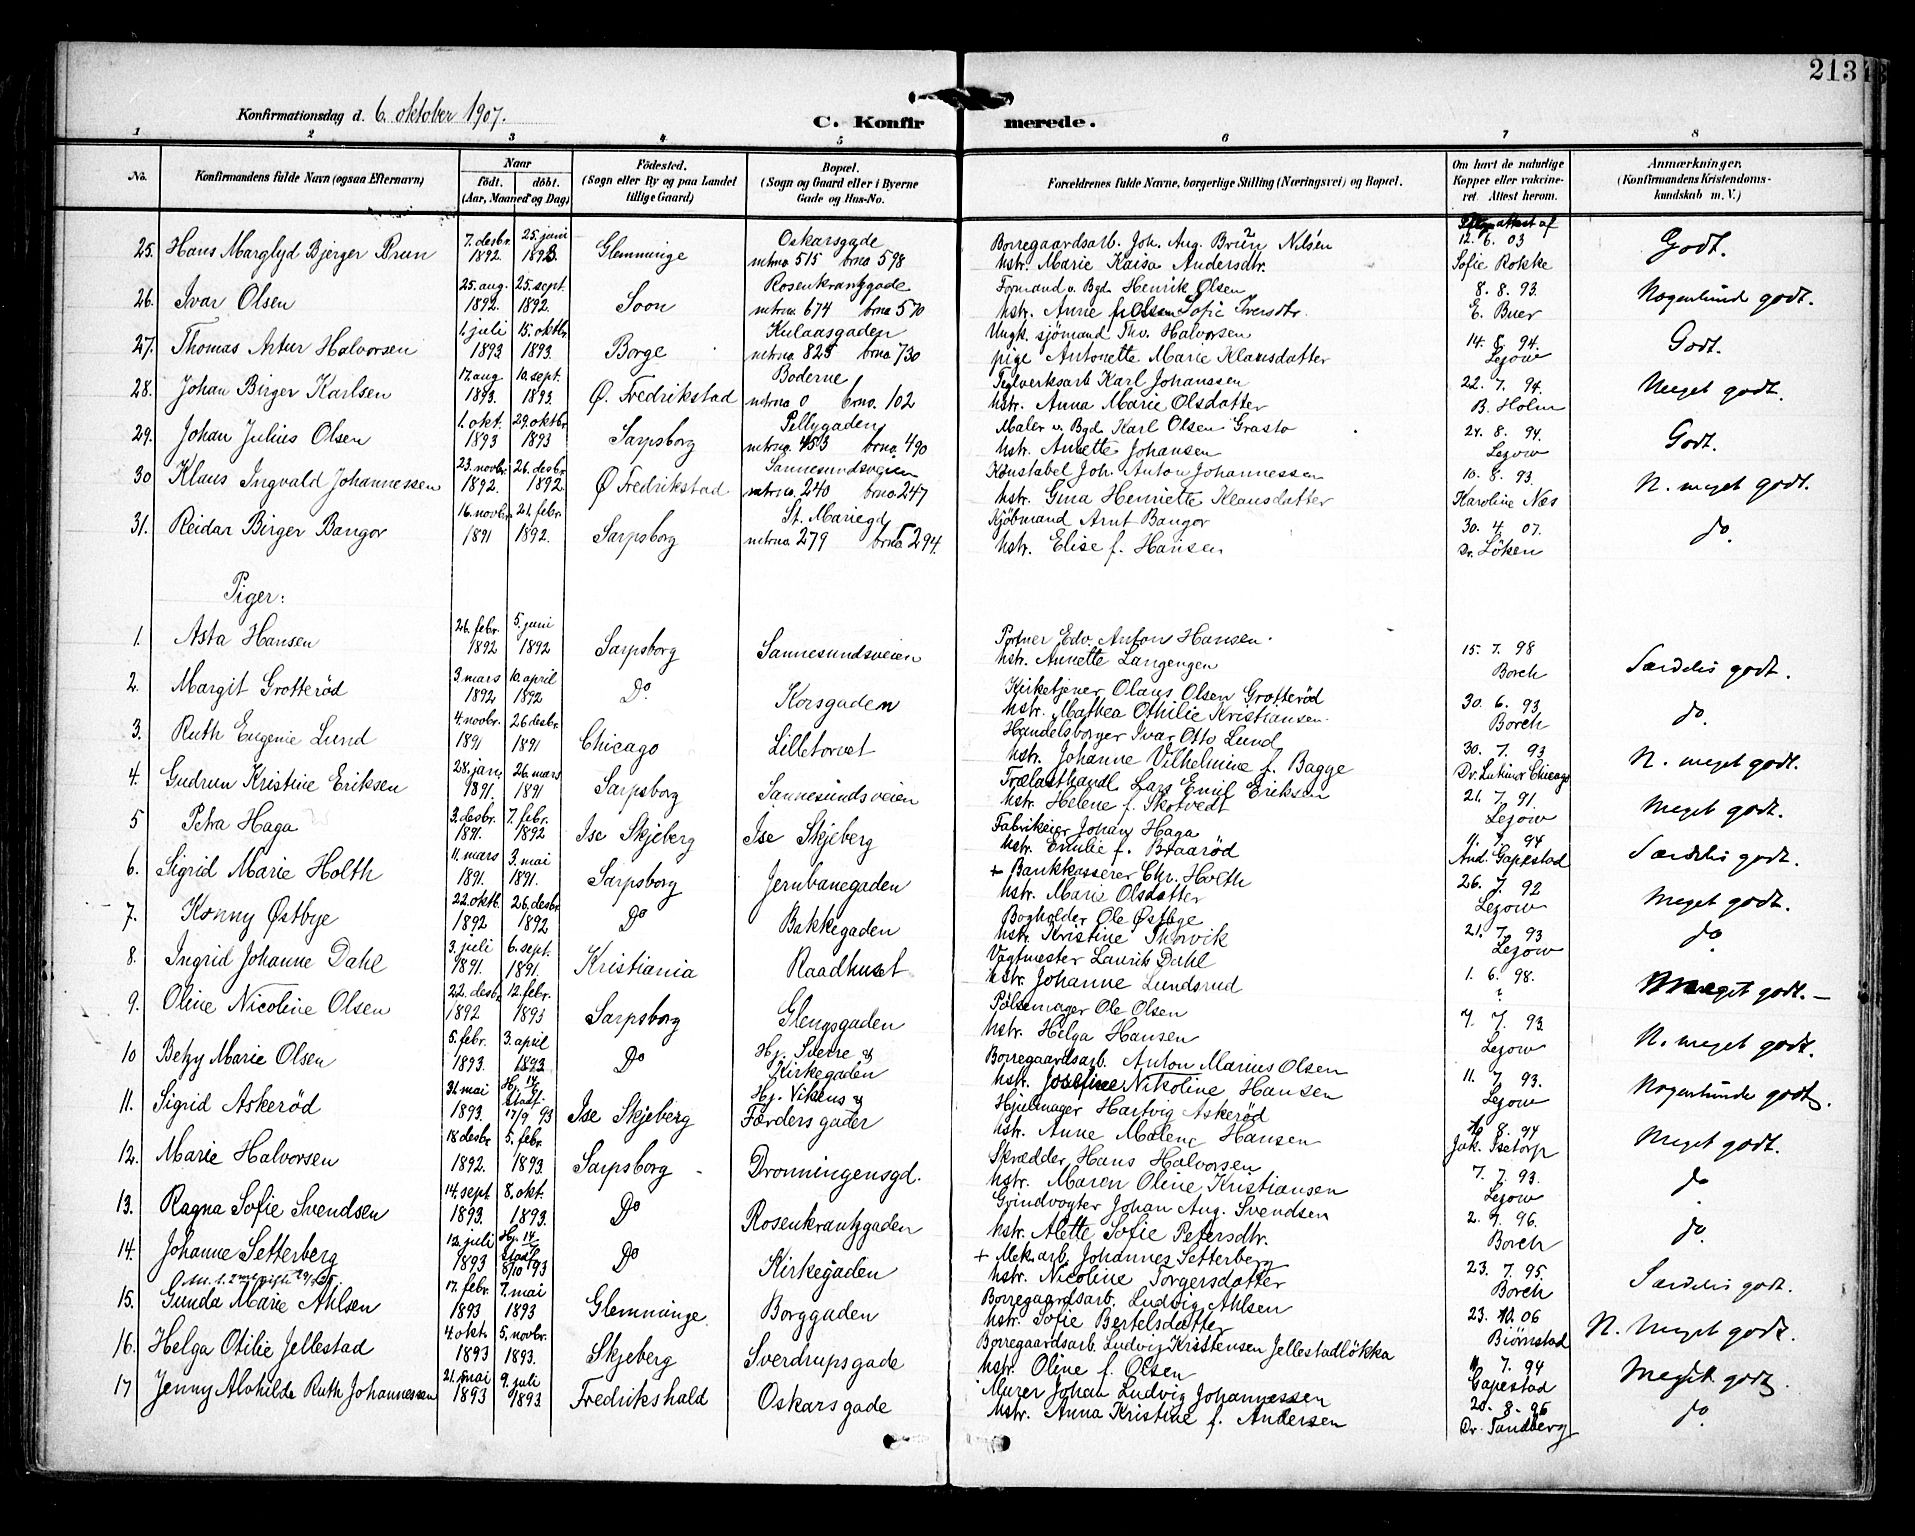 213
Konfirmationsdag d. 6. oktober 1907.
C. Konfirmerede.
1 2 3 4 5 6 7 8
No.
Konfirmandens fulde Navn (ogsaa Efternavn)
Naar
födt. döbt.
(Aar, Maaned og Dag)
Födested.
(Sogn eller By og paa Landet
tillige Gaard)
Bopæl.
(Sogn og Gaard eller i Byerne
Gade og Hus-No.
Forældrenes fulde Navne, borgerlige Stilling (Næringsvei) og Bopæl.
Om havt de naturlige
Kopper eller vakcine-
ret. Attest herom.
Anmærkninger,
(Konfirmandens Kristendoms-
kundskab m. V.)
25. Hans Marglyd Bjerger Brun 7. desbr. 1892 25. juni 1893. Glemminge Oskarsgade mtrno 515 brno 598 Borregaardsarb. Joh. Aug. Brün Nilsen hstr. Marie Kaisa Andersdtr. attest af 12. 6. 03 Sofie Rokke Godt.
26. Ivar Olsen 25. aug. 1892. 25. sept. 1892. Soon Rosenkrantzgade mtrno 674 brno 570 Formand v. Bgd. Henrik Olsen hstr. Anne Sofie Iversdtr. 8. 8. 93. E. Buer Nogenlunde godt.
27. Thomas Artur Halvorsen 1. juli 1893 15. oktbr. 1893. Borge Kulaasgaden mtrno 825 brno 730 Ungk. sjömand Thv. Halvorsen pige Antonette Marie Klausdatter 14. 8. 94. Lezow Godt.
28. Johan Birger Karlsen 17. aug 1893. 10. sept. 1893. Ø. Fredrikstad Boderne mtrno 0 brno. 102 Teglverksarb Karl Johanssen hstr. Anna Marie Olsdatter 22. 7. 94. B. Holm Meget godt.
29. Johan Julius Olsen 1. okt. 1893 29. oktbr. 1893 Sarpsborg Pellygaden mtrno. 453 brno. 490 Maler v. Bgd. Karl Olsen Grasto hstr. Anette Johansen 24. 8. 94. Lezow Godt.
30 Klaus Ingvald Johannessen 23. novbr. 1892. 26. desbr. 1892 Ø Fredrikstad Sannesundsveien mtrno. 240 brno. 247 Konstabel Joh. Anton Johannessen hstr. Gina Henriette Klausdatter 10. 8. 93. Karoline Næs N. meget godt.
31. Reidar Birger Bangor 16. novbr. 1891 21. febr. 1892. Sarpsborg St. Mariegd. mtrno. 279 brno. 294. Kjöbmand Arnt Bangor hstr. Elise f. Hansen 30. 4. 07. Dr. Löken do.
Piger:
1. Asta Hansen 26. febr. 1892 5. juni 1892 Sarpsborg Sannesundsveien Portner Edv. Anton Hansen. hstr. Annette Langengen 15. 7. 98 Borch Særdeles godt.
2. Margit Grotteröd 3. mars 1892 10. april 1892 Do. Korsgaden Kirketjener Olaus Olsen Grotteröd hstr. Mathea Othilie Kristiansen. 30. 6. 93. Borch do.
3. Ruth Eugenie Lund 4. novbr. 1891 26. desbr. 1891 Chicago Lilletorvet Handelsborger Ivar Otto Lund hstr. Johanne Vilhelmine f. Bagge 30. 7. 93 Dr. Chicago N. meget godt.
4. Gudrun Kristine Eriksen 28. jan. 1891. 26. mars 1891 Sarpsborg Sannesundsveien Trælasthandl. Lars Emil Eriksen hstr. Helene f. Skotvedt 21. 7. 91. Lezow Meget godt.
5 Petra Haga 3. desbr. 1891. 7. febr. 1892 Ise Skjeberg Ise Skjeberg Fabrikeier Johan Haga hstr. Emilie f. Braaröd 11. 7. 94 And. Gapestad Særdeles godt.
6. Sigrid Marie Holth 11. mars 1891. 3. mai 1891. Sarpsborg Jernbanegaden + Bankkasserer Chr. Holth hstr. Marie Olsdatter 26. 7. 92 Lezow Meget godt.
7. Konny Østbye 22. oktb. 1892 26. desbr 1892 Do Bakkegaden Bogholder Ole Østbye hstr. Kristine Thorvik 21. 7. 93 Lezow do
8. Ingrid Johanne Dahl 3. juli 1891. 6. sept. 1891. Kristiania Raadhuset Vagtmester Laurits Dahl hstr. Johanne Lundsrud 1. 6. 98. ? Meget godt. –
9. Oline Nicoline Olsen 22. desbr. 1892 12. febr. 1893 Sarpsborg Glengsgaden Pölsemager Ole Olsen hstr. Helga Hansen 7. 7. 93 Lezow N. meget godt.
10 Betzy Marie Olsen 5. febr. 1893. 3. april 1893 Do Hj. Sverre & Kirkegaden Borregaardsarb. Anton Marius Olsen hstr. Josefine Nikoline Hansen 11. 7. 93. Lezow Nogenlunde godt.
11. Sigrid Askeröd 31. mai 1893. Hj. 14/6 stadf. 17/9 93 Ise Skjeberg Hj. Vikens & Færders gader Hjulmager Hartvig Askeröd hstr. Anne Malene Hansen 10 8. 94 Jak. Isetorp Meget godt.
12. Marie Halvorsen 18. desbr. 1892. 5. febr. 1893. Sarpsborg Dronningensgd. Skrædder Hans Halvorsen hstr. Maren Oline Kristiansen 7. 7. 93. Lezow do
13. Ragna Sofie Svendsen 14. sept 1893. 8. okt. 1893. Do Rosenkrantzgaden Grindvogter Johan Aug. Svendsen hstr. Alette Sofie Petersdtr. 2. 9. 96. Borch do.
14. Johanne Setterberg 12. juli 1893 Hj. 14/ stadf. 8/10 93 Do Kirkegaden + Mek. arb. Johannes Setterberg hstr. Nicoline Torgersdatter 23. 7. 95. Borch Særdeles godt.
15. Gunda Marie Ahlsen 17. febr. 1893 7. mai 1893 Glemminge. Borggaden Borregaardsarb. Ludvig Ahlsen hstr. Sofie Bertelsdatter 23. 10. 06 Biörnstad N. Meget godt.
16. Helga Otilie Jellestad 4. okt. 1893 5. novbr. 1893. Skjeberg Sverdrupsgade Borregaardsarb. Ludvig Kristensen Jellestadlökka hstr. Oline f. Olsen 11 7. 94 Gapestad Meget godt.
17 Jenny Alvhilde Ruth Johannessen 21. mai 1893 9. juli 1893 Fredrikshald Oskars gade Murer Johan Ludvig Johannessen hstr. Anna Kristine f. Andersen 20. 8. 95 Dr. Tandberg do.